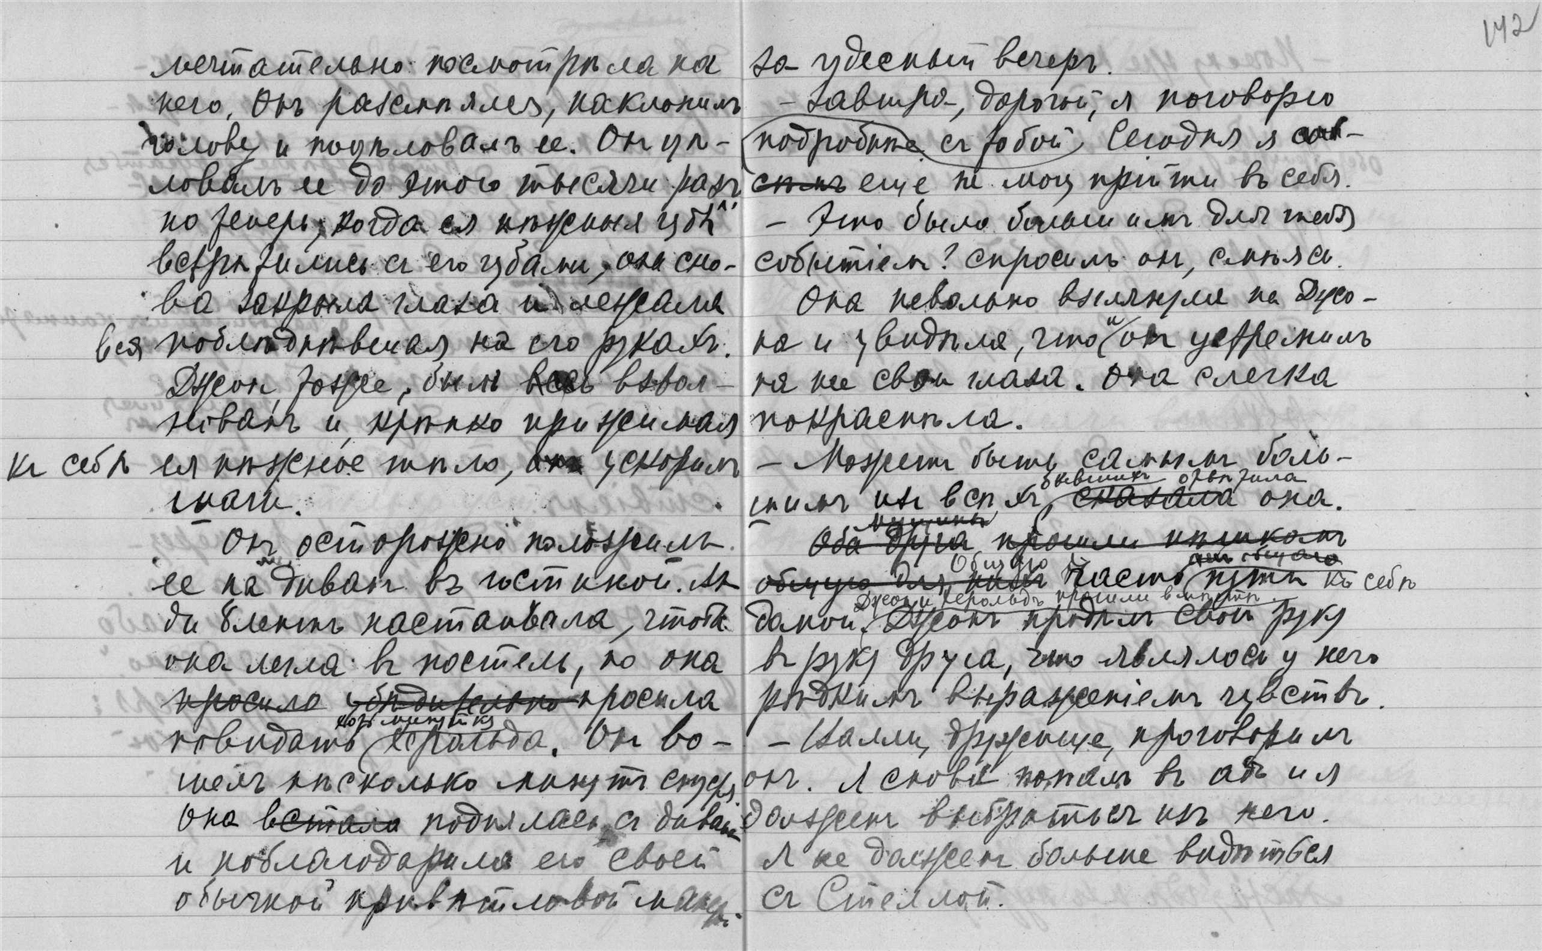 142
мечтательно посмотрѣла на
него. Онъ разсмѣялся, наклонилъ
голову и поцѣловалъ ее. Он цѣ-
ловалъ ее до этого тысячи разъ
но теперь, когда ея нѣжныя губы
встрѣтились съ его губами, она сно-
ва закрыла глаза и лежала
вся поблѣднѣвшая на его рукахъ.
Джон, тоже, былъ весь взвол-
нованъ и, крѣпко прижимая
къ себѣ ея нѣжное тѣло, онъ ускорилъ
шаги.
Онъ осторожно положилъ
ее на диванъ въ гостиной. Лэ-
ди Блентъ настаивала, чтобы
она легла въ постель, но она
просила убѣдительно просила
повидать хоть минутку Херольда. Он во-
шелъ нѣсколько минутъ спустя.
Она встала поднялась съ дивана
и поблагодарила его своей
обычной привѣтливой манер.
за чудесный вечеръ.
– Завтра, дорогой, я поговорю
подробнѣе съ тобой. Сегодня я сов-
сѣмъ еще не могу прійти въ себя.
– Это было большимъ для тебя
событіем? спросилъ он, смѣясь.
Она невольно взглянула на Джо-
на и увидѣла, что и он устремилъ
на нее свои глаза. Она слегка
покраснѣла.
– Можетъ быть самымъ боль-
шимъ изъ всѣхъ бывшихъ, сказала отвѣтила она.
Оба друга мужчины прошли пѣшкомъ
общую для нихъ Общую часть пути къ себѣ
домой. Джон и Херольдъ прошли вмѣстѣ Джонъ продѣлъ свою руку
въ руку друга, что являлось у него
рѣдкимъ выраженіемъ чувствъ.
– Уалли, дружище, проговорилъ
онъ. Я снова попалъ въ адъ и я
долженъ выбраться изъ него.
Я не долженъ больше видѣться
съ Стеллой.